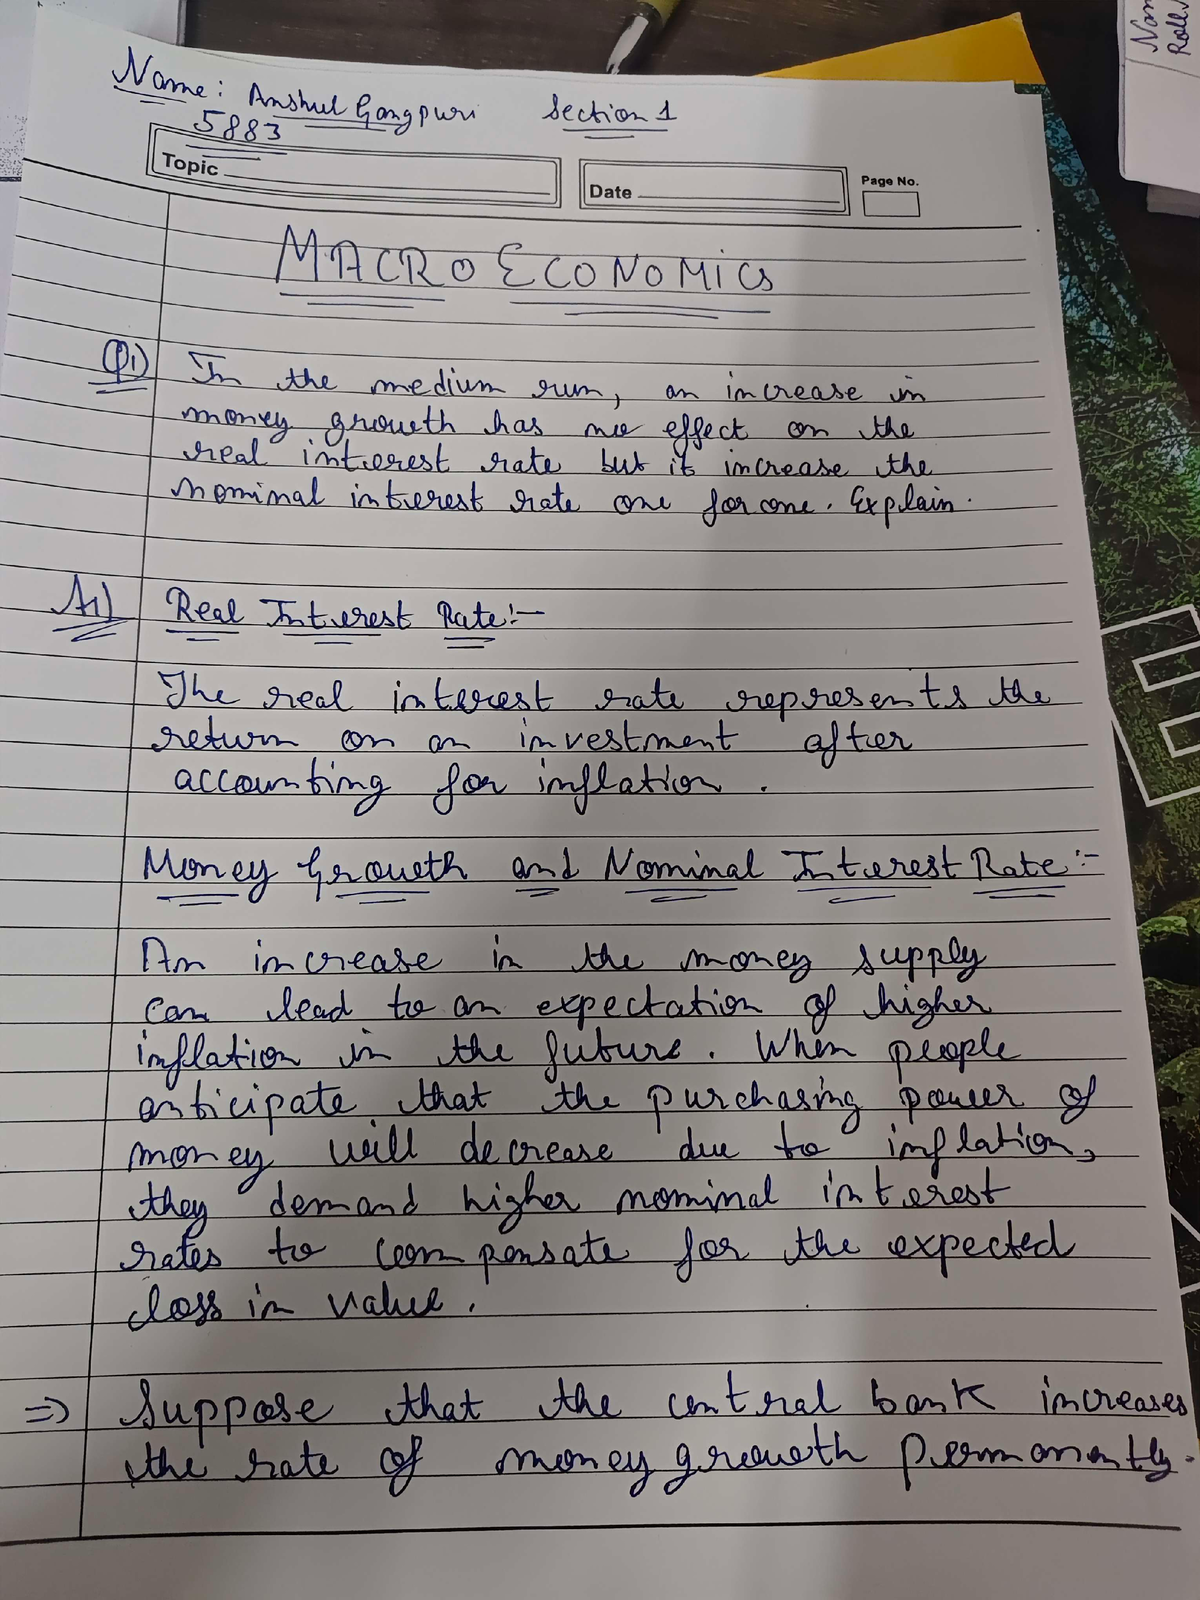 Name: Anshul Gangpuri Section 1
5883
Topic
Date
Page No.
Nam
Roll
MACRO ECONOMICS
Q1) In the medium run, an increase in
money growth has no effect on the
real interest rate but it increase the
nominal interest rate one for one. Explain.
A1) Real Interest Rate:-
The real interest rate represents the
return on an investment after
accounting for inflation.
Money Growth and Nominal Interest Rate:-
An increase in the money supply
can lead to an expectation of higher
inflation in the future. When people
anticipate that the purchasing power of
money will decrease due to inflation,
they demand higher nominal interest
rates to compensate for the expected
loss in value.
⇒ Suppose that the central bank increases
the rate of money growth permanently.